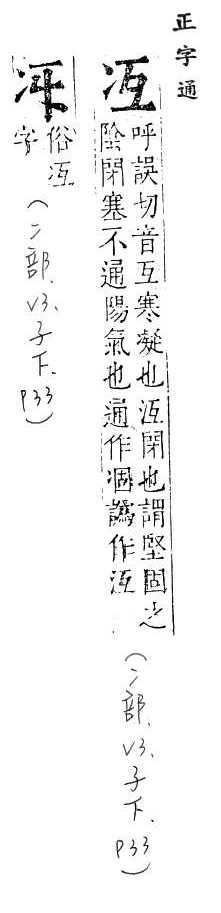 正字通
冱
呼誤切音互寒凝也冱閉也謂堅固之
陰閉塞不通陽氣也通作凅譌作沍
(冫部. V3. 子下. P33)
冴
俗冱
字
(冫部. V3. 子下. P33)